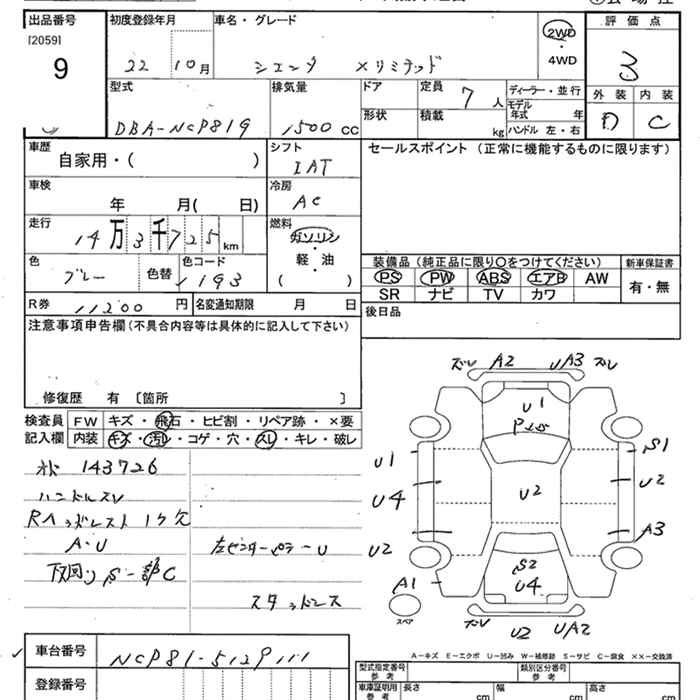 出品番号 初度登録年月 車名・グレード 評価点
[2059]
9
22 10月 シエンタ Xリミテッド 2WD・4WD 3
型式 排気量 ドア 定員 7人 ディーラー・並行 外装 内装
DBA-NCP81G 1500cc 形状 積載 kg モデル年式 年 ハンドル 左・右 D C
車歴 シフト セールスポイント（正常に機能するものに限ります）
自家用・( ) IAT
車検 冷房
年 月( 日) AC
走行 燃料
14万3千725km ガソリン・軽・油 ( )
装備品（純正品に限り○をつけてください） 新車保証書
色 ブルー 色替 色コード 1193
PS PW ABS エアB AW 有・無
SR ナビ TV カワ
R券 11200円 名変通知期限 月 日
後日品
注意事項申告欄（不具合内容等は具体的に記入して下さい）
修復歴 有 〔箇所 〕
検査員 FW キズ・飛石・ヒビ割・リペア跡・×要
記入欄 内装 キズ・汚レ・コゲ・穴・スレ・キレ・破レ
143726
ハンドルスレ
Rヘッドレスト1ケ欠
A・U 左センターピラーU
下回りS一部C
スタッドレス
ズレ A2 UA3 ズレ
U1
U1 S1
U4 U2 U2
U2 A3
S2
A1 U4
スペア
ズレ U2 UA2
A－キズ E－エクボ U－凹み W－補修跡 S－サビ C－腐食 ××－交換済
車台番号 NCP81-5129111
登録番号
型式指定番号 参考 類別区分番号 参考
車庫証明用 参考 長さ cm 幅 cm 高さ cm